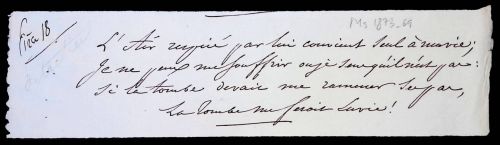 Ms 1873-69
L'Air respiré par lui convient seul à ma vie;
Je ne peux me souffrir où je sens qu'il n'est pas:
Si la tombe devait me ramener
La tombe me ferait envie!